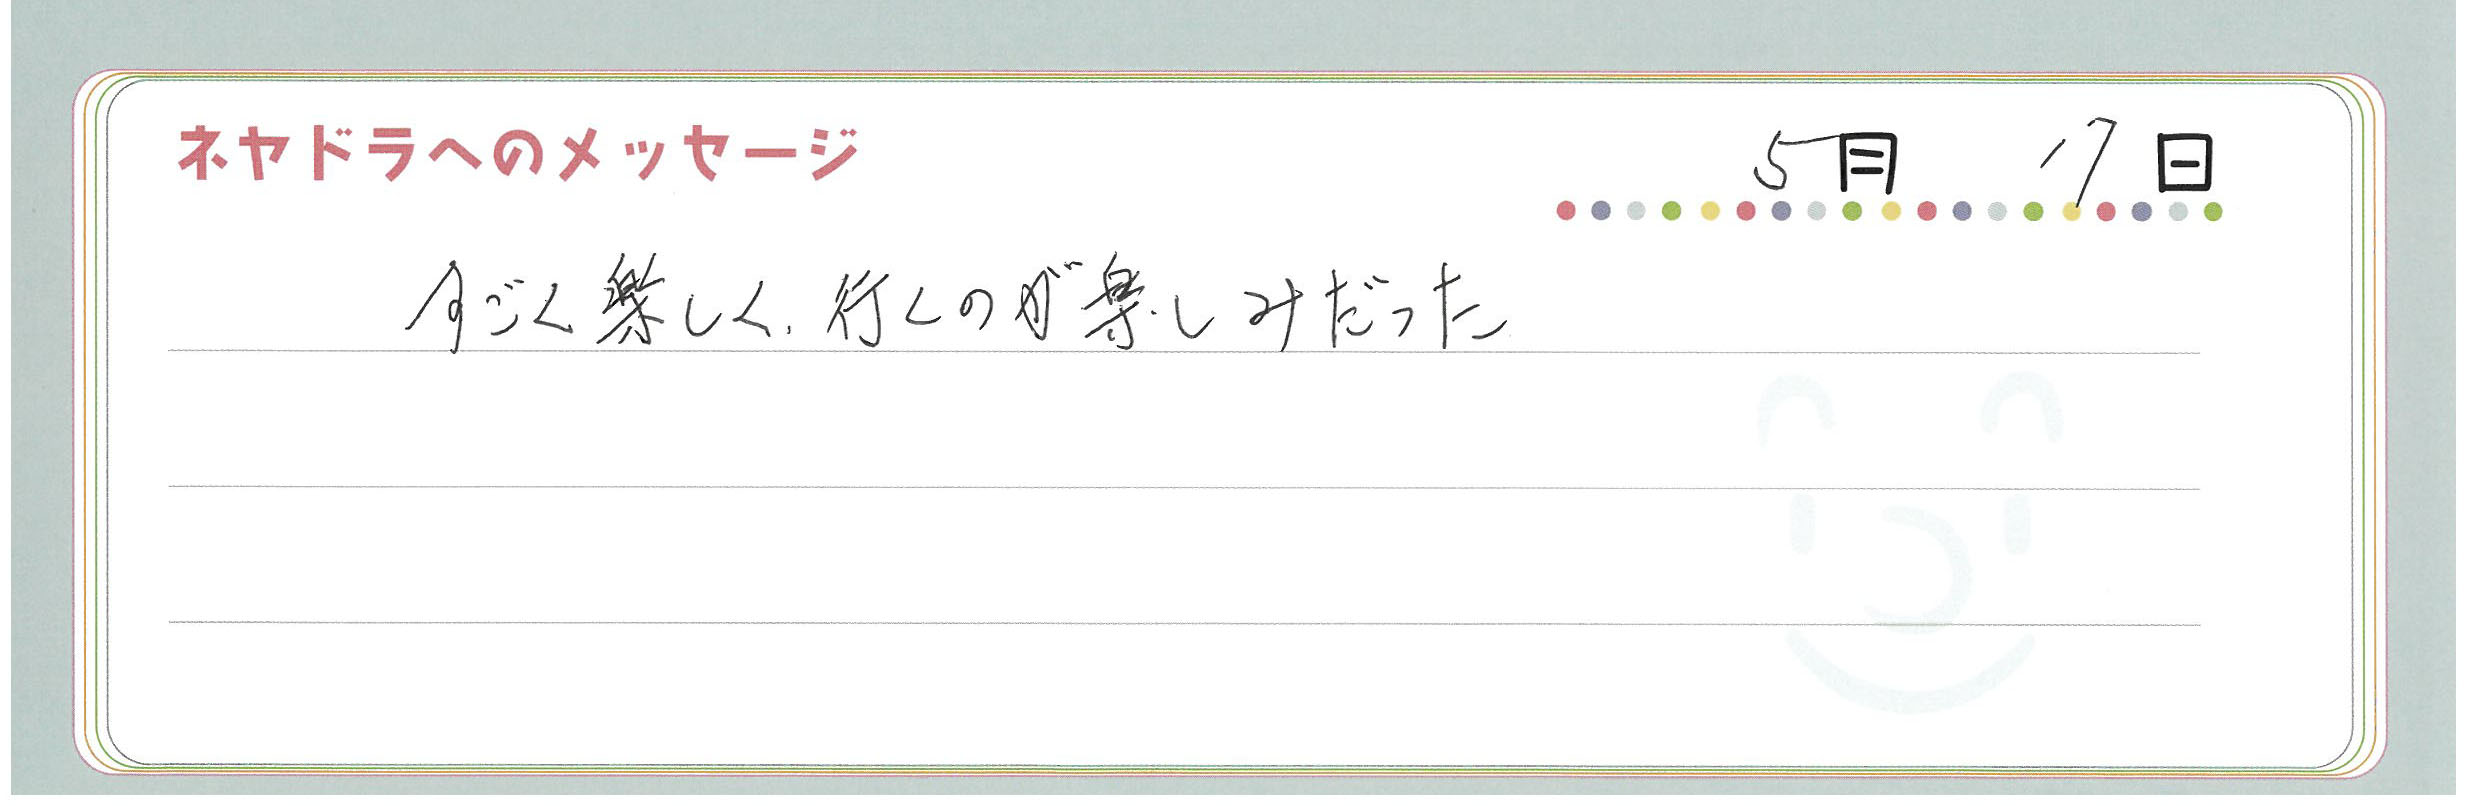 ネヤドラへのメッセージ
5月 17日
すごく楽しく、行くのが楽しみだった